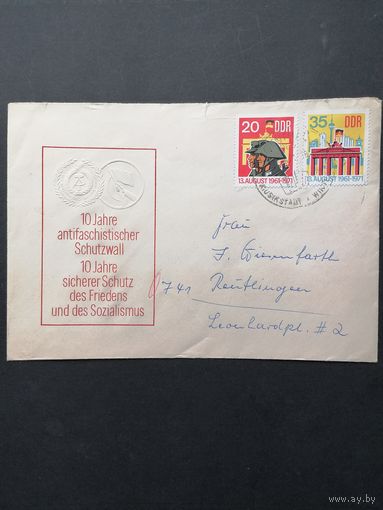 20 DDR
13. AUGUST 1961-1971
35 DDR
13. AUGUST 1961-1971
10 Jahre
antifaschistischer
Schutzwall
10 Jahre
sicherer Schutz
des Friedens
und des Sozialismus
Frau
J. Wiesenfarth
741 Reutlingen
Leonhardpl. # 2
ay.by